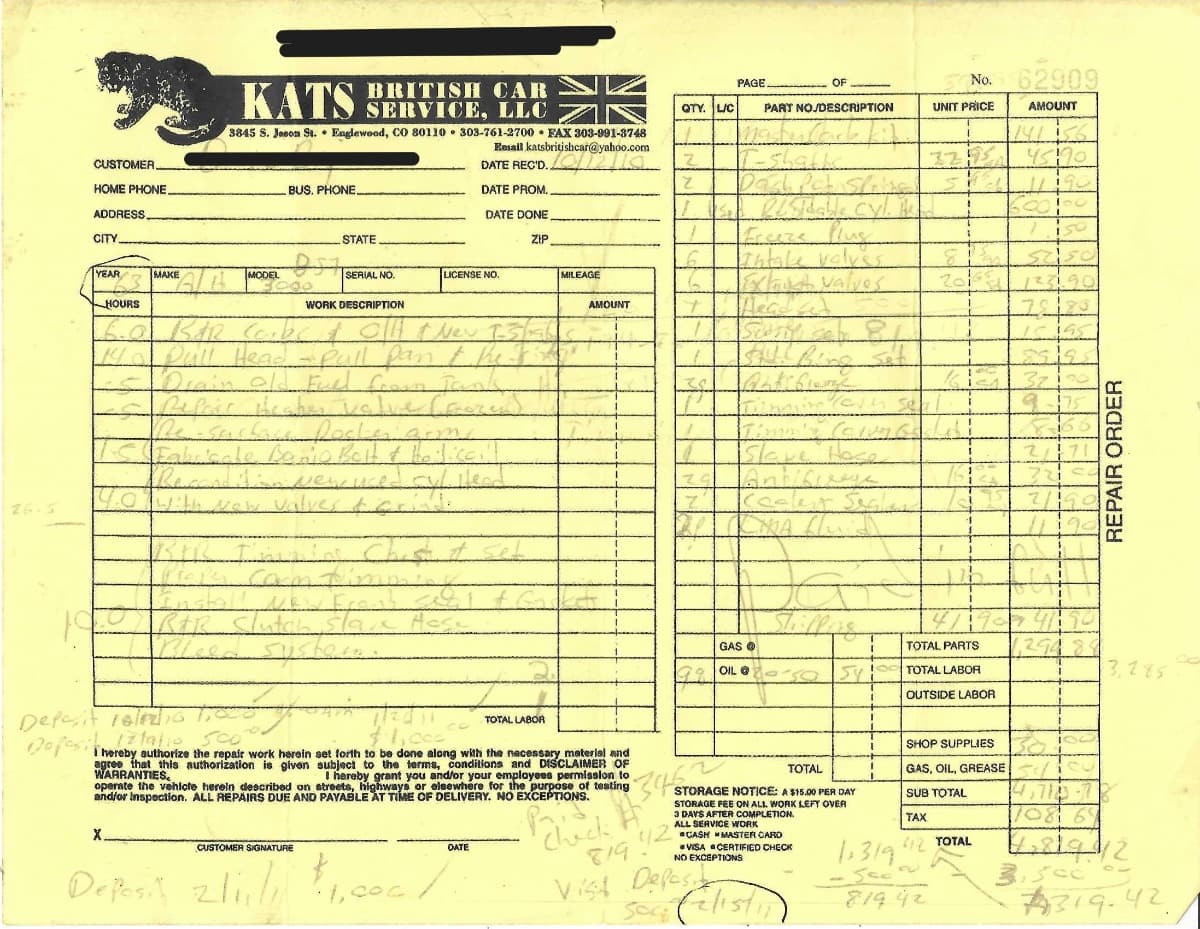 KATS BRITISH CAR SERVICE, LLC
3845 S. Jason St. • Englewood, CO 80110 • 303-761-2700 • FAX 303-991-3748
Email katsbritishcar@yahoo.com
CUSTOMER DATE REC'D. 10/12/10
HOME PHONE BUS. PHONE DATE PROM.
ADDRESS DATE DONE
CITY STATE ZIP
YEAR 63 MAKE A/H MODEL 3000 SERIAL NO. LICENSE NO. MILEAGE
HOURS WORK DESCRIPTION AMOUNT
6.0 R&R Carbs & O/H & New T-Shafts
14.0 Pull Head - Pull Pan & Re-Ring
.5 Drain Old Fuel From Tank
.5 Repair Heater Valve (Frozen)
Re-surface Rocker arms
1.5 Fabricate Banjo Bolt & Helicoil
Recondition New used Cyl. Head
4.0 With New Valves & Grind
R&R Timming Chest & Set
Cam timming
Install New Front Seal & Gasket
10.0 R&R Clutch Slave Hose
Bleed System.
26.5
TOTAL LABOR
Deposit 10/12/10 1,000
Deposit 500
1/21/11 $1,000.00
I hereby authorize the repair work herein set forth to be done along with the necessary material and
agree that this authorization is given subject to the terms, conditions and DISCLAIMER OF
WARRANTIES. I hereby grant you and/or your employees permission to
operate the vehicle herein described on streets, highways or elsewhere for the purpose of testing
and/or inspection. ALL REPAIRS DUE AND PAYABLE AT TIME OF DELIVERY. NO EXCEPTIONS.
X
CUSTOMER SIGNATURE DATE
Deposit 2/1/11 $1,000
Paid Check # 3462
819.42
Visa Deposit
500 2/15/11
PAGE OF No. 62909
QTY. L/C PART NO./DESCRIPTION UNIT PRICE AMOUNT
1 Master Carb Kit 141.56
2 T-Shafts 22.95 ea 45.90
2 Dash Pot Springs 5.95 ea 11.90
1 used Rebuildable Cyl. Head 600.00
1 Freeze Plug 1.50
6 Intake Valves 8.75 52.50
6 Exhaust Valves 20.65 ea 123.90
1 Head Set 78.80
1 15.95
1 Ring Set 89.95
2g Antifreeze 16.00 ea 32.00
1 Timming Cover Seal 9.75
1 Timming Cover Gasket
1 Slave Hose 21.71
2g Antifreeze 16.00 32.00
2 Coolant Sealer 10.95 21.90
LMA Fluid 11.90
Paid in full
Shipping 41.90 41.90
GAS @ TOTAL PARTS 1,299.88
OIL @ 20-50 54.00 TOTAL LABOR 3,285.00
OUTSIDE LABOR
SHOP SUPPLIES 30.00
TOTAL GAS, OIL, GREASE 54.00
SUB TOTAL 4,710.78
TAX 108.64
TOTAL 4,819.42
3,500.00
1,319.42
STORAGE NOTICE: A $15.00 PER DAY
STORAGE FEE ON ALL WORK LEFT OVER
3 DAYS AFTER COMPLETION.
ALL SERVICE WORK
■CASH ■MASTER CARD
■VISA ■CERTIFIED CHECK
NO EXCEPTIONS
1,319.42
- 500.00
819.42
REPAIR ORDER